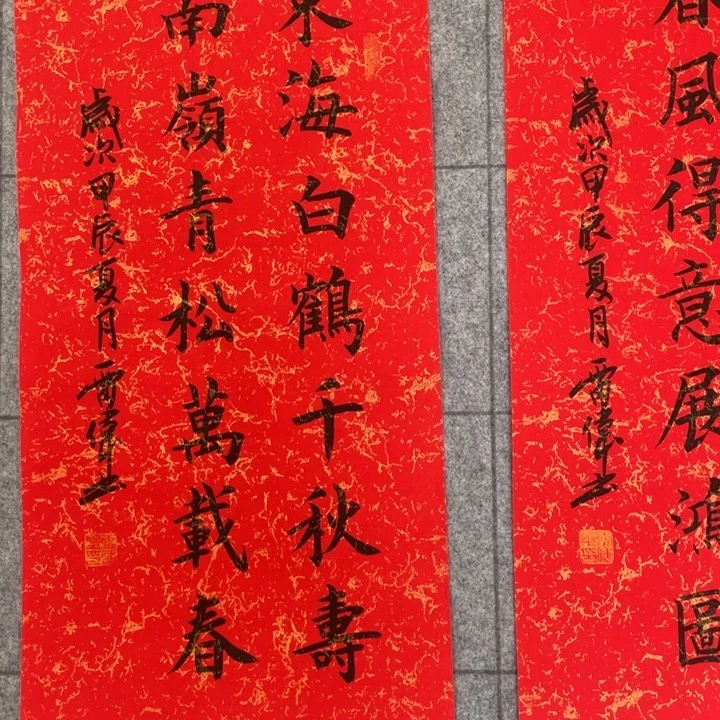 東海白鶴千秋壽
南嶺青松萬載春
歲次甲辰夏月
春風得意展鴻圖
歲次甲辰夏月